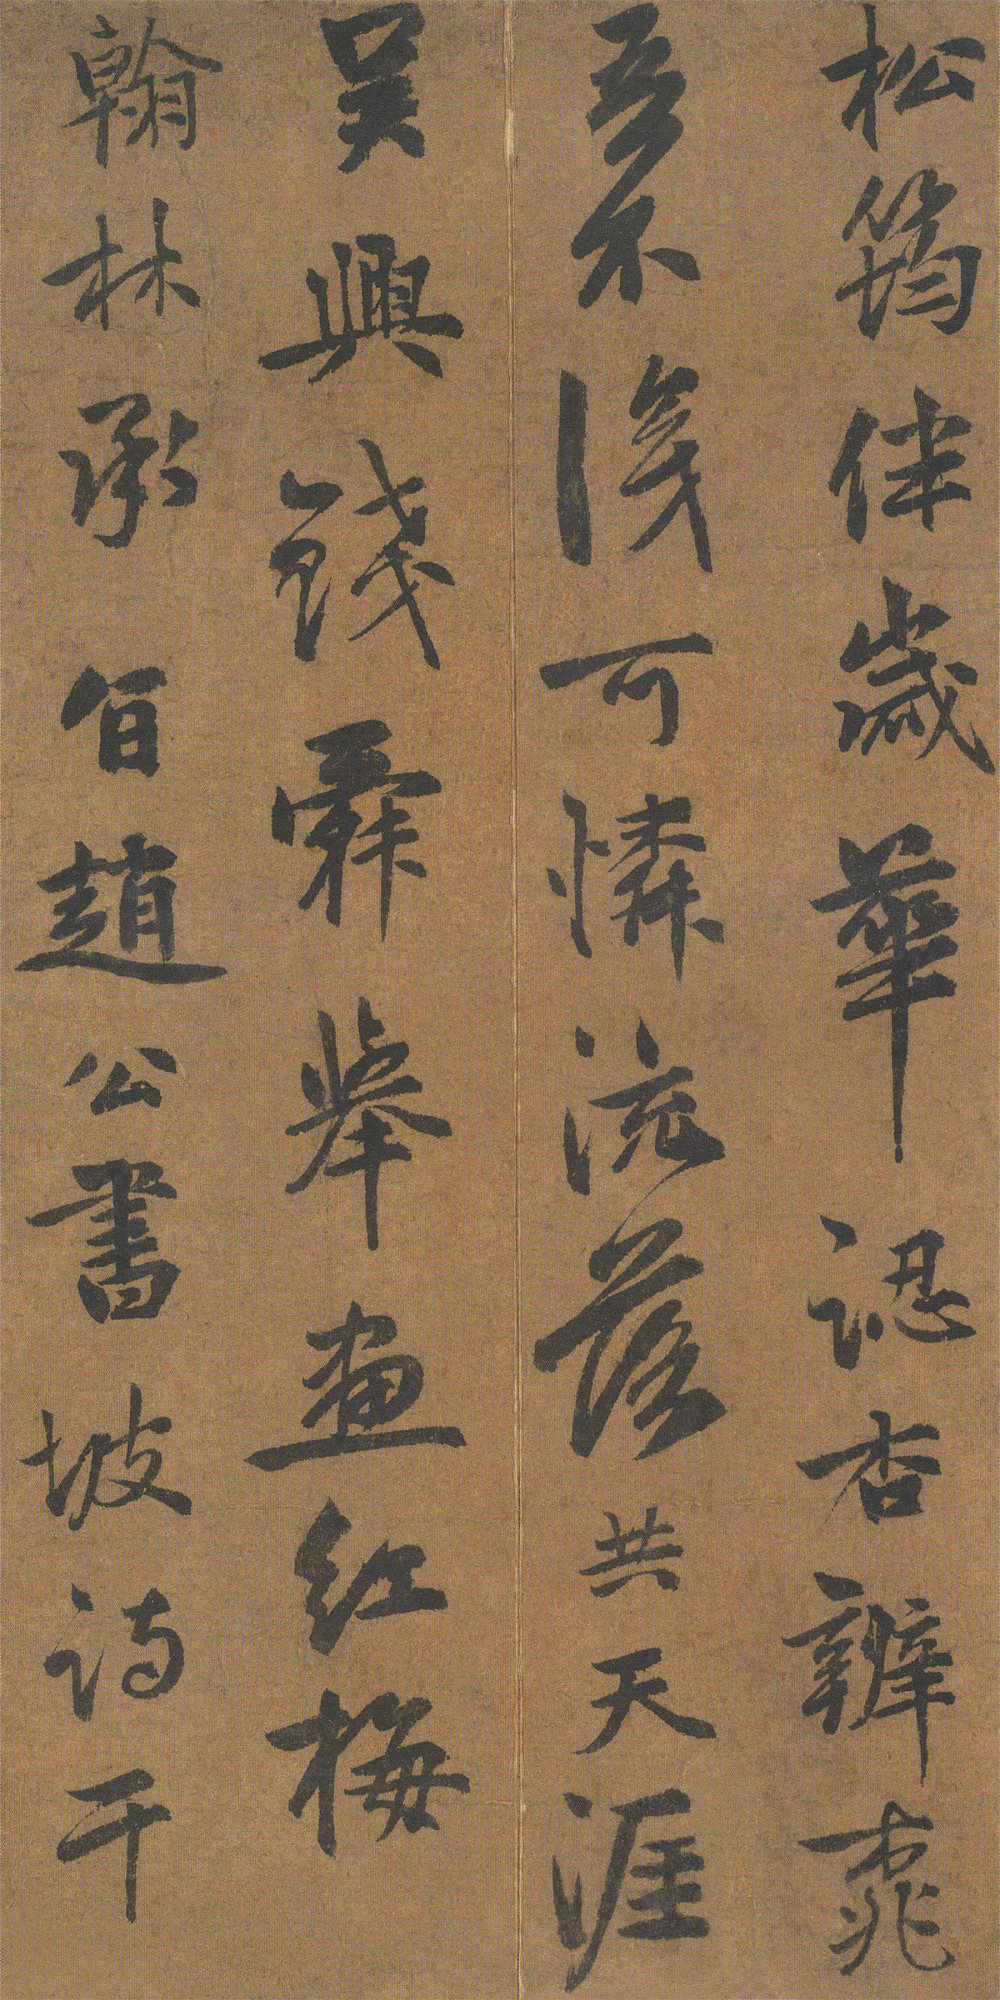 松筠伴歲華認杏辧桃
吾不淺可憐流落共天涯
吳興錢舜舉畫紅梅
翰林承旨趙公書坡詩于